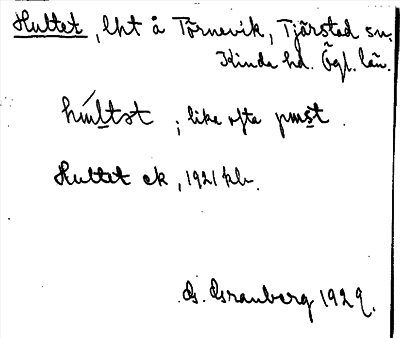 Hultet, lht å Törnevik, Tjärstad sn.
Kinda hd. Ögl. län.
; like ofta
Hultet ek, 1921 kb.
G. Granberg 1929.